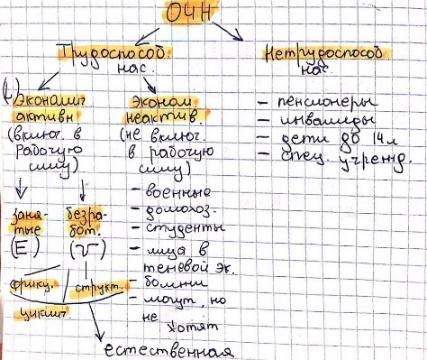 ОЧН
Трудоспособ.
нас.
Нетрудоспособ
нас.
(L)
Экономич
активн
(включ. в
рабочую
силу)
Эконом
неактив.
(не включ.
в рабочую
силу)
- пенсионеры
- инвалиды
- дети до 14л
- спец. учрежд.
заня-
тые
(E)
безра-
бот.
(U)
- военные
- домохоз.
- студенты
- лица в
теневой эк.
- больные
- могут, но
не
хотят
фрикц.
структ.
циклич
естественная